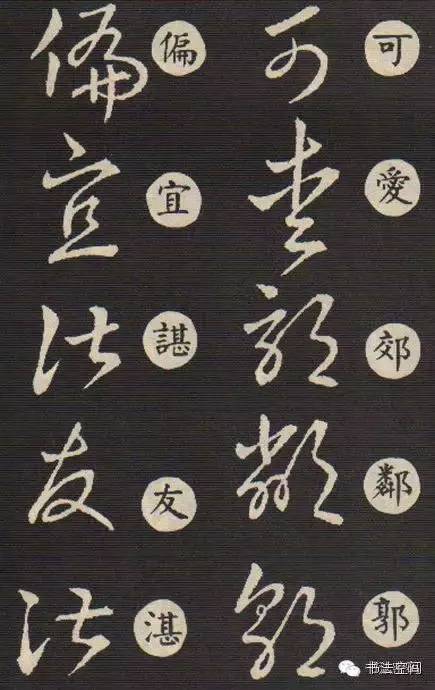 可愛郊鄰郭
偏宜諶友湛
书法空间